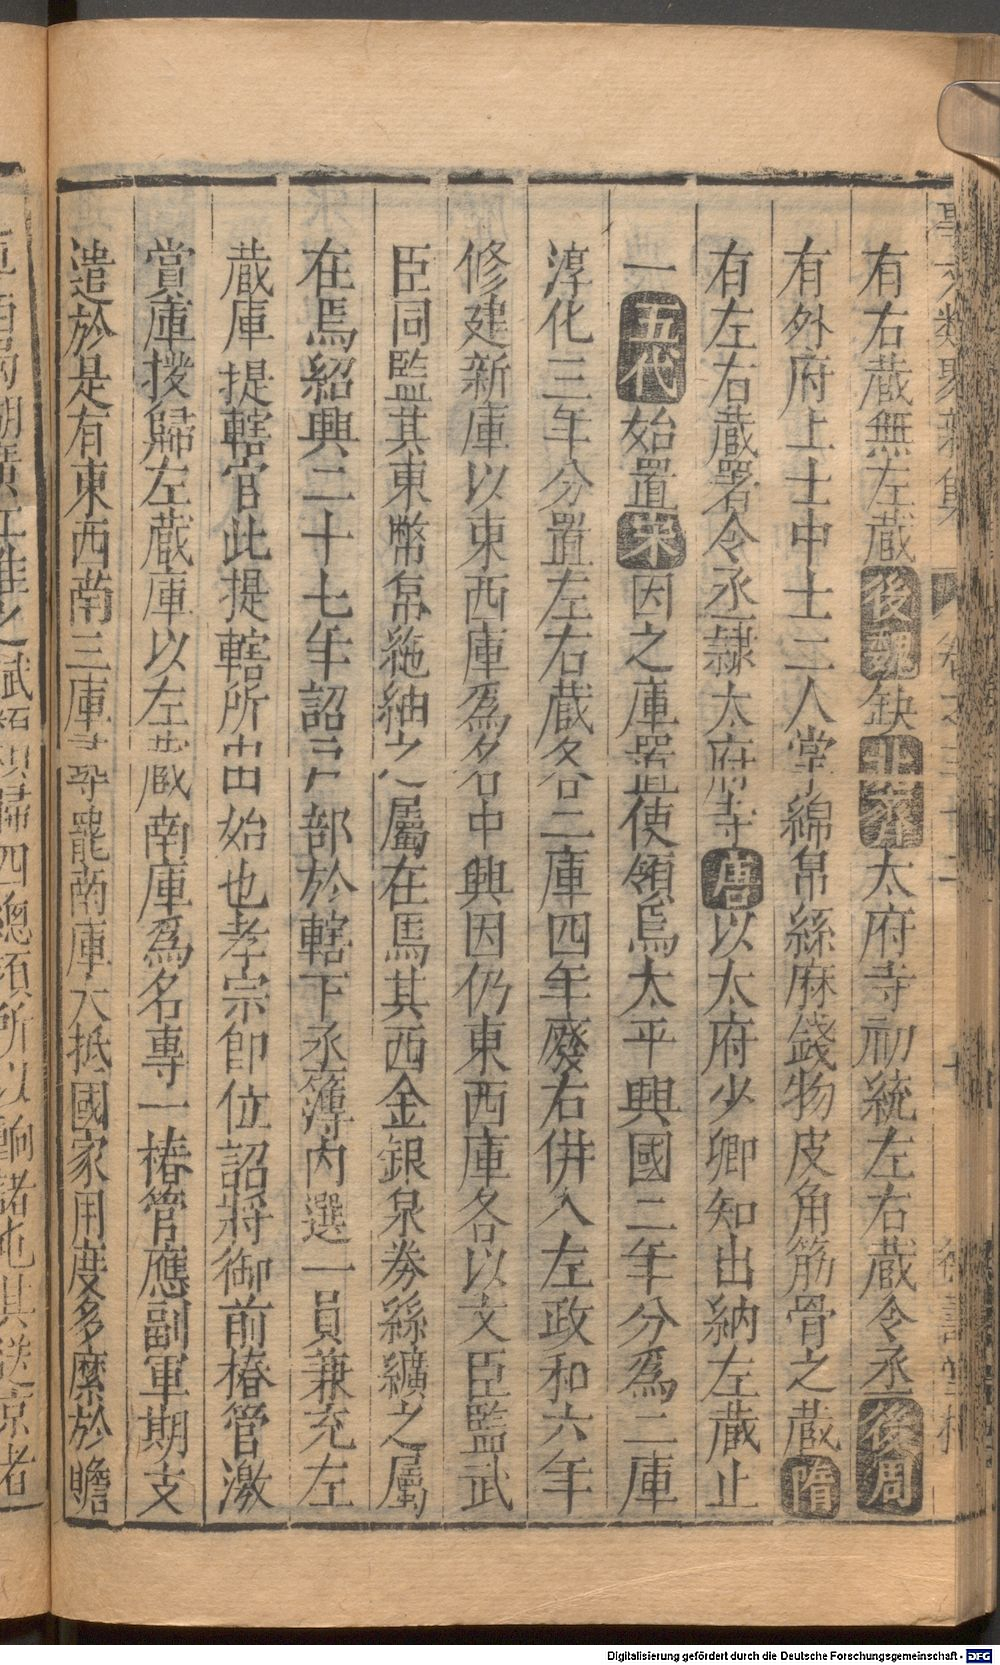 有右蔵無左蔵後魏缺北齊太府寺初統左右蔵令丞後周
有外府上士中士二人掌綿帛絲麻錢物皮角筋骨之蔵隋
有左右蔵署令丞隷太府寺唐以太府少卿知出納左蔵止
一五代始置宋因之庫置使領焉太平興國二年分爲二庫
淳化三年分置左右蔵各二庫四年廢右併入左政和六年
修建新庫以東西庫爲名中興因仍東西庫各以文臣監武
臣同監其東幣帛絁紬之屬在焉其西金銀泉券絲纊之屬
在焉紹興二十七年詔戸部於轄下丞簿内選一員兼充左
蔵庫提轄官此提轄所由始也孝宗即位詔將御前樁管激
賞庫撥歸左蔵庫以左蔵南庫爲名專一樁管應副軍期支
遣於是有東西南三庫尋罷南庫大抵國家用度多糜於贍
Digitalisierung gefördert durch die Deutsche Forschungsgemeinschaft - DFG